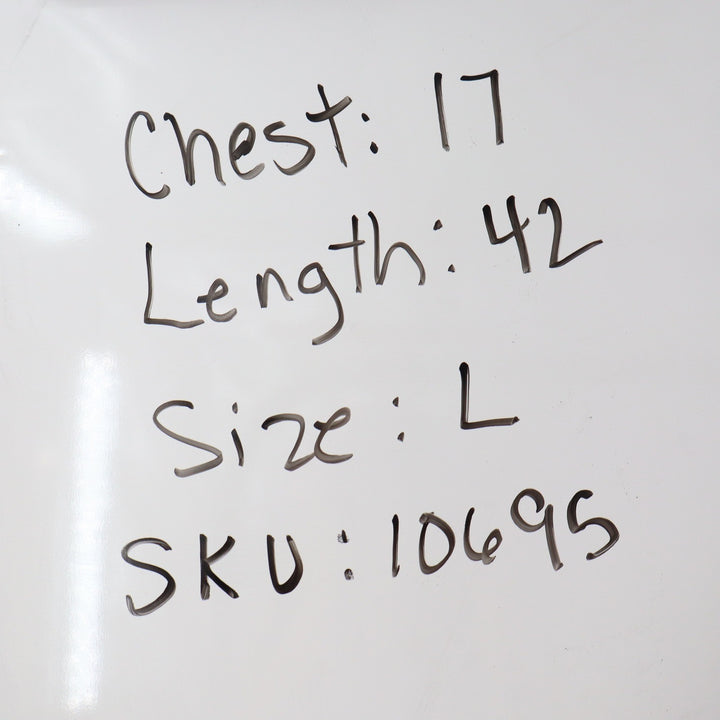 Chest: 17
Length: 42
Size: L
SKU: 10695